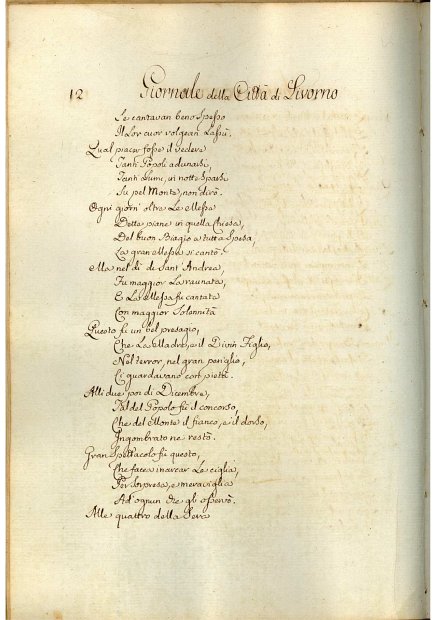 12 Giornale della Città di Livorno
Se cantavan bene spesso
Il lor cuor volgean lassù.
Qual piacer fosse il vedere
Tanti Popoli adunarsi,
Tanti Lumi, in notte sparsi
Su pel Monte, non dirò.
Ogni giorn' oltre Le Messe
Dette piane in quella Chiesa,
Del buon Biagio a tutta spesa,
La gran Messa si cantò.
Ma nel dì di Sant' Andrea,
Fu maggior La raunata,
E La Messa fu cantata
Con maggior Solennità
Questo fù un bel presagio,
Che La Madre, e il Divin Figlio,
Nel terror, nel gran periglio,
Ci guardavano con pietà.
Alli due poi di Dicembre,
Tal del Popolo fù il concorso,
Che del Monte il fianco, e il dorso,
Ingombrato ne restò.
Gran Spettacolo fù questo,
Che facea inarcar Le ciglia,
Per sorpresa, e meraviglia
Ad' ognun che gli osservò.
Alle quattro della Sera